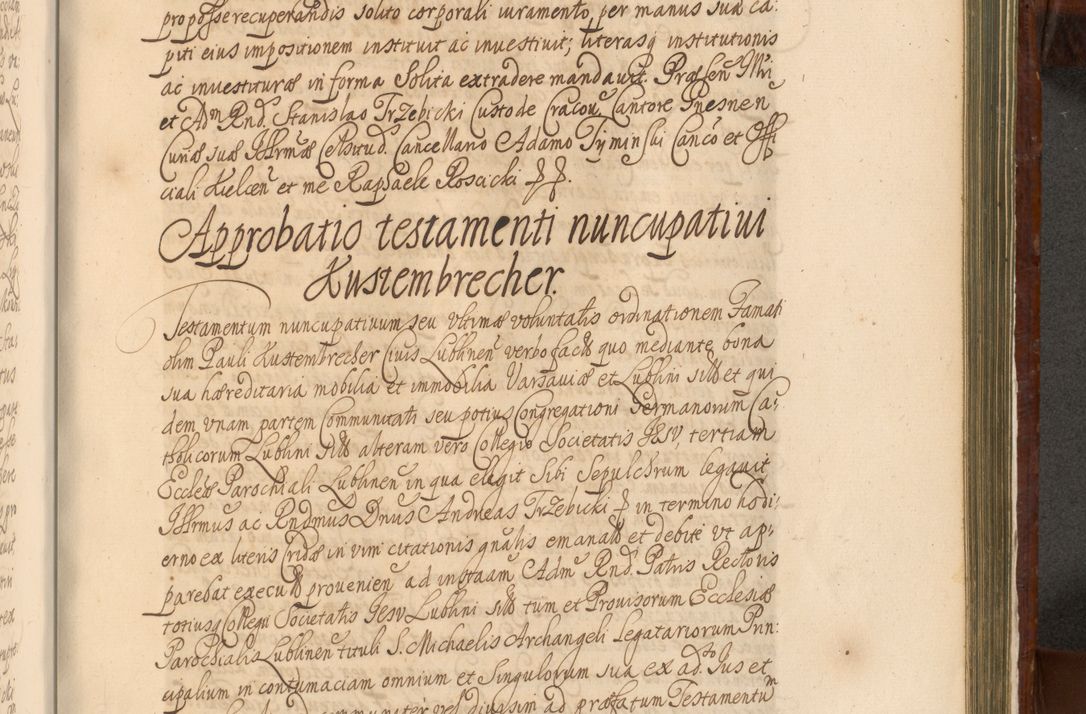 proposse recuperandis solito corporali iuramento, per manus suæ ca:
piti eius impositionem instituit ac inuestiuit; literasq institutionis
ac inuestituræ in forma Solita extradere mandauit. Præsen Illri
et Adm Rnd. Stanislao Trzebicki Custode Cracou Cantore Gnesnen
Curiæ suæ Illrmæ Celsitud. Cancellario Adamo Tyminski Canco et Offi
ciali Kielcen et me Raphaele Roscicki
Approbatio testamenti nuncupatiui
Kustembrecher.
Testamentum nuncupatiuum seu vltimæ voluntatis ordinationem Famati
olim Pauli Kustembrecher Ciuis Lublinen verbo factu quo mediante bona
sua hæreditaria mobilia et immobilia Varsauiæ et Lublini sita et qui
dem vnam partem Communitati seu potius Congregationi Germanorum Ca:
tholicorum Lublini sita alteram vero Collegio Societatis IESV tertiam
Ecclesiæ Parochiali Lublinen in qua elegit Sibi Sepulchrum legauit
Illrmus ac Rndmus Dnus Andreas Trzebicki in termino hodi:
erno ex literis Cridæ in vim citationis gnalis emanatis et debite vt ap:
parebat executis prouenien ad instaam Adm Rnd. Patris Rectoris
totiusq Collegii Societatis Iesu Lublini siti tum et Prouisorum Ecclesiæ
Parochialis Lublinen tituli S. Michaelis Archangeli Legatariorum Prin:
cipalium in contumaciam omnium et Singulorum sua ex adto Ius et
ad præfatum Testamentum